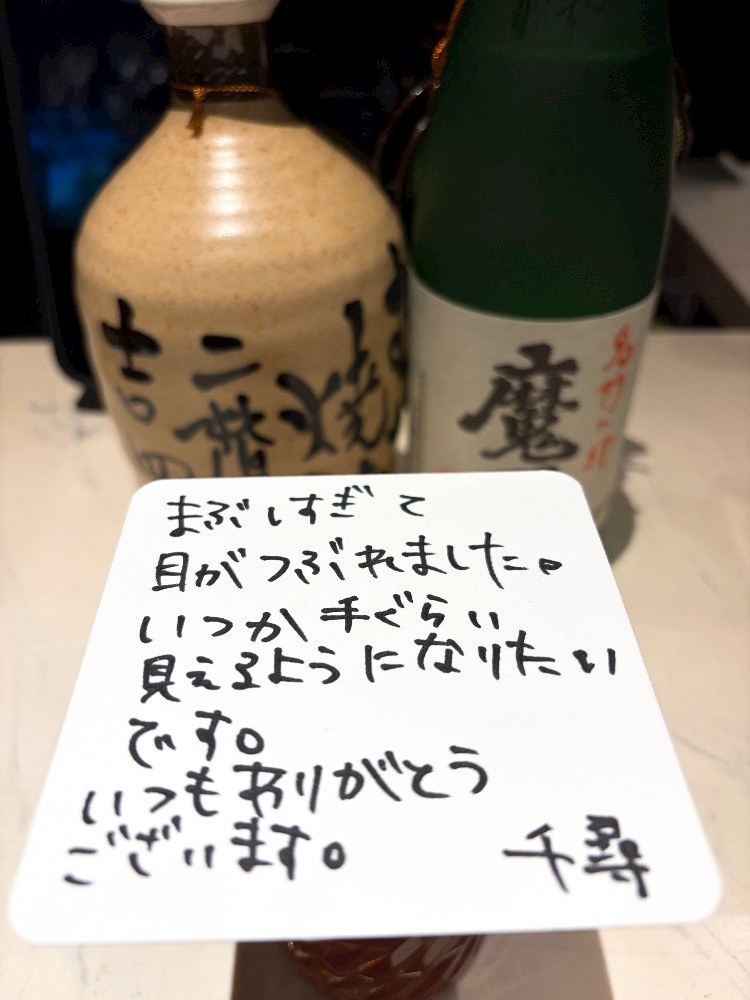 吉四
二階
焼
魔
まぶしすぎて
目がつぶれました。
いつか手ぐらい
見えるようになりたい
です。
いつもありがとう
ございます。
千尋